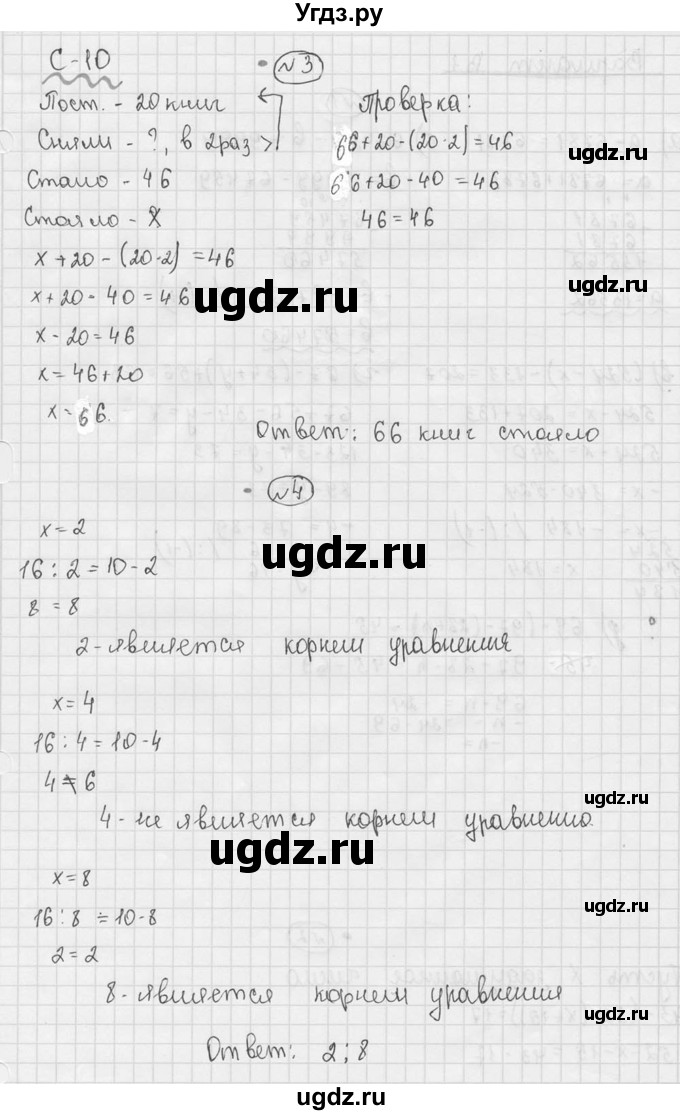 Угдз.ру
С-10
№3
Пост. - 20 книг
Сняли - ?, в 2раз >
Стало - 46
Стояло - X
x + 20 - (20·2) = 46
x + 20 - 40 = 46
x - 20 = 46
x = 46 + 20
x = 66.
Проверка:
66 + 20 - (20·2) = 46
66 + 20 - 40 = 46
46 = 46
Ответ: 66 книг стояло
№4
x = 2
16 : 2 = 10 - 2
8 = 8
2 - является корнем уравнения
x = 4
16 : 4 = 10 - 4
4 ≠ 6
4 - не является корнем уравнению.
x = 8
16 : 8 = 10 - 8
2 = 2
8 - является корнем уравнения
Ответ: 2 ; 8
ugdz.ru
ugdz.ru
ugdz.ru
ugdz.ru
ugdz.ru
ugdz.ru
ugdz.ru
ugdz.ru
ugdz.ru
ugdz.ru